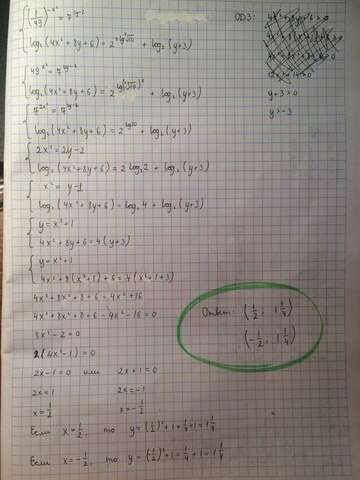 (1/49)^(-x²) = 7^(2y-2)
log₂(4x²+8y+6) = 2 + log₂(y+3)
ОДЗ:
49^(x²) = 7^(2y-2)
log₂(4x²+8y+6) = 2 + log₂(y+3)
y+3>0
7^(2x²) = 7^(2y-2)
y>-3
log₂(4x²+8y+6) = 2 + log₂(y+3)
2x² = 2y-2
log₂(4x²+8y+6) = 2 log₂2 + log₂(y+3)
x² = y-1
log₂(4x²+8y+6) = log₂4 + log₂(y+3)
y = x²+1
4x²+8y+6 = 4(y+3)
y = x²+1
4x²+8(x²+1)+6 = 4(x²+1+3)
4x²+8x²+8+6 = 4x²+16
4x²+8x²+8+6-4x²-16=0
8x²-2=0
2(4x²-1)=0
2x-1=0 или 2x+1=0
2x=1 2x=-1
x=1/2 x=-1/2
Ответ: (1/2; 1 1/4)
(-1/2; 1 1/4)
Если x=1/2, то y=(1/2)²+1=1/4+1=1 1/4
Если x=-1/2, то y=(-1/2)²+1=1/4+1=1 1/4